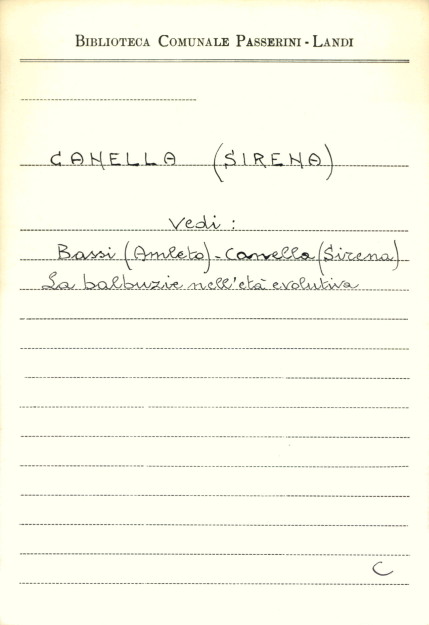 BIBLIOTECA COMUNALE PASSERINI - LANDI
CANELLA (SIRENA)
Vedi :
Bassi (Amleto) - Canella (Sirena)
La balbuzie nell'età evolutiva
C